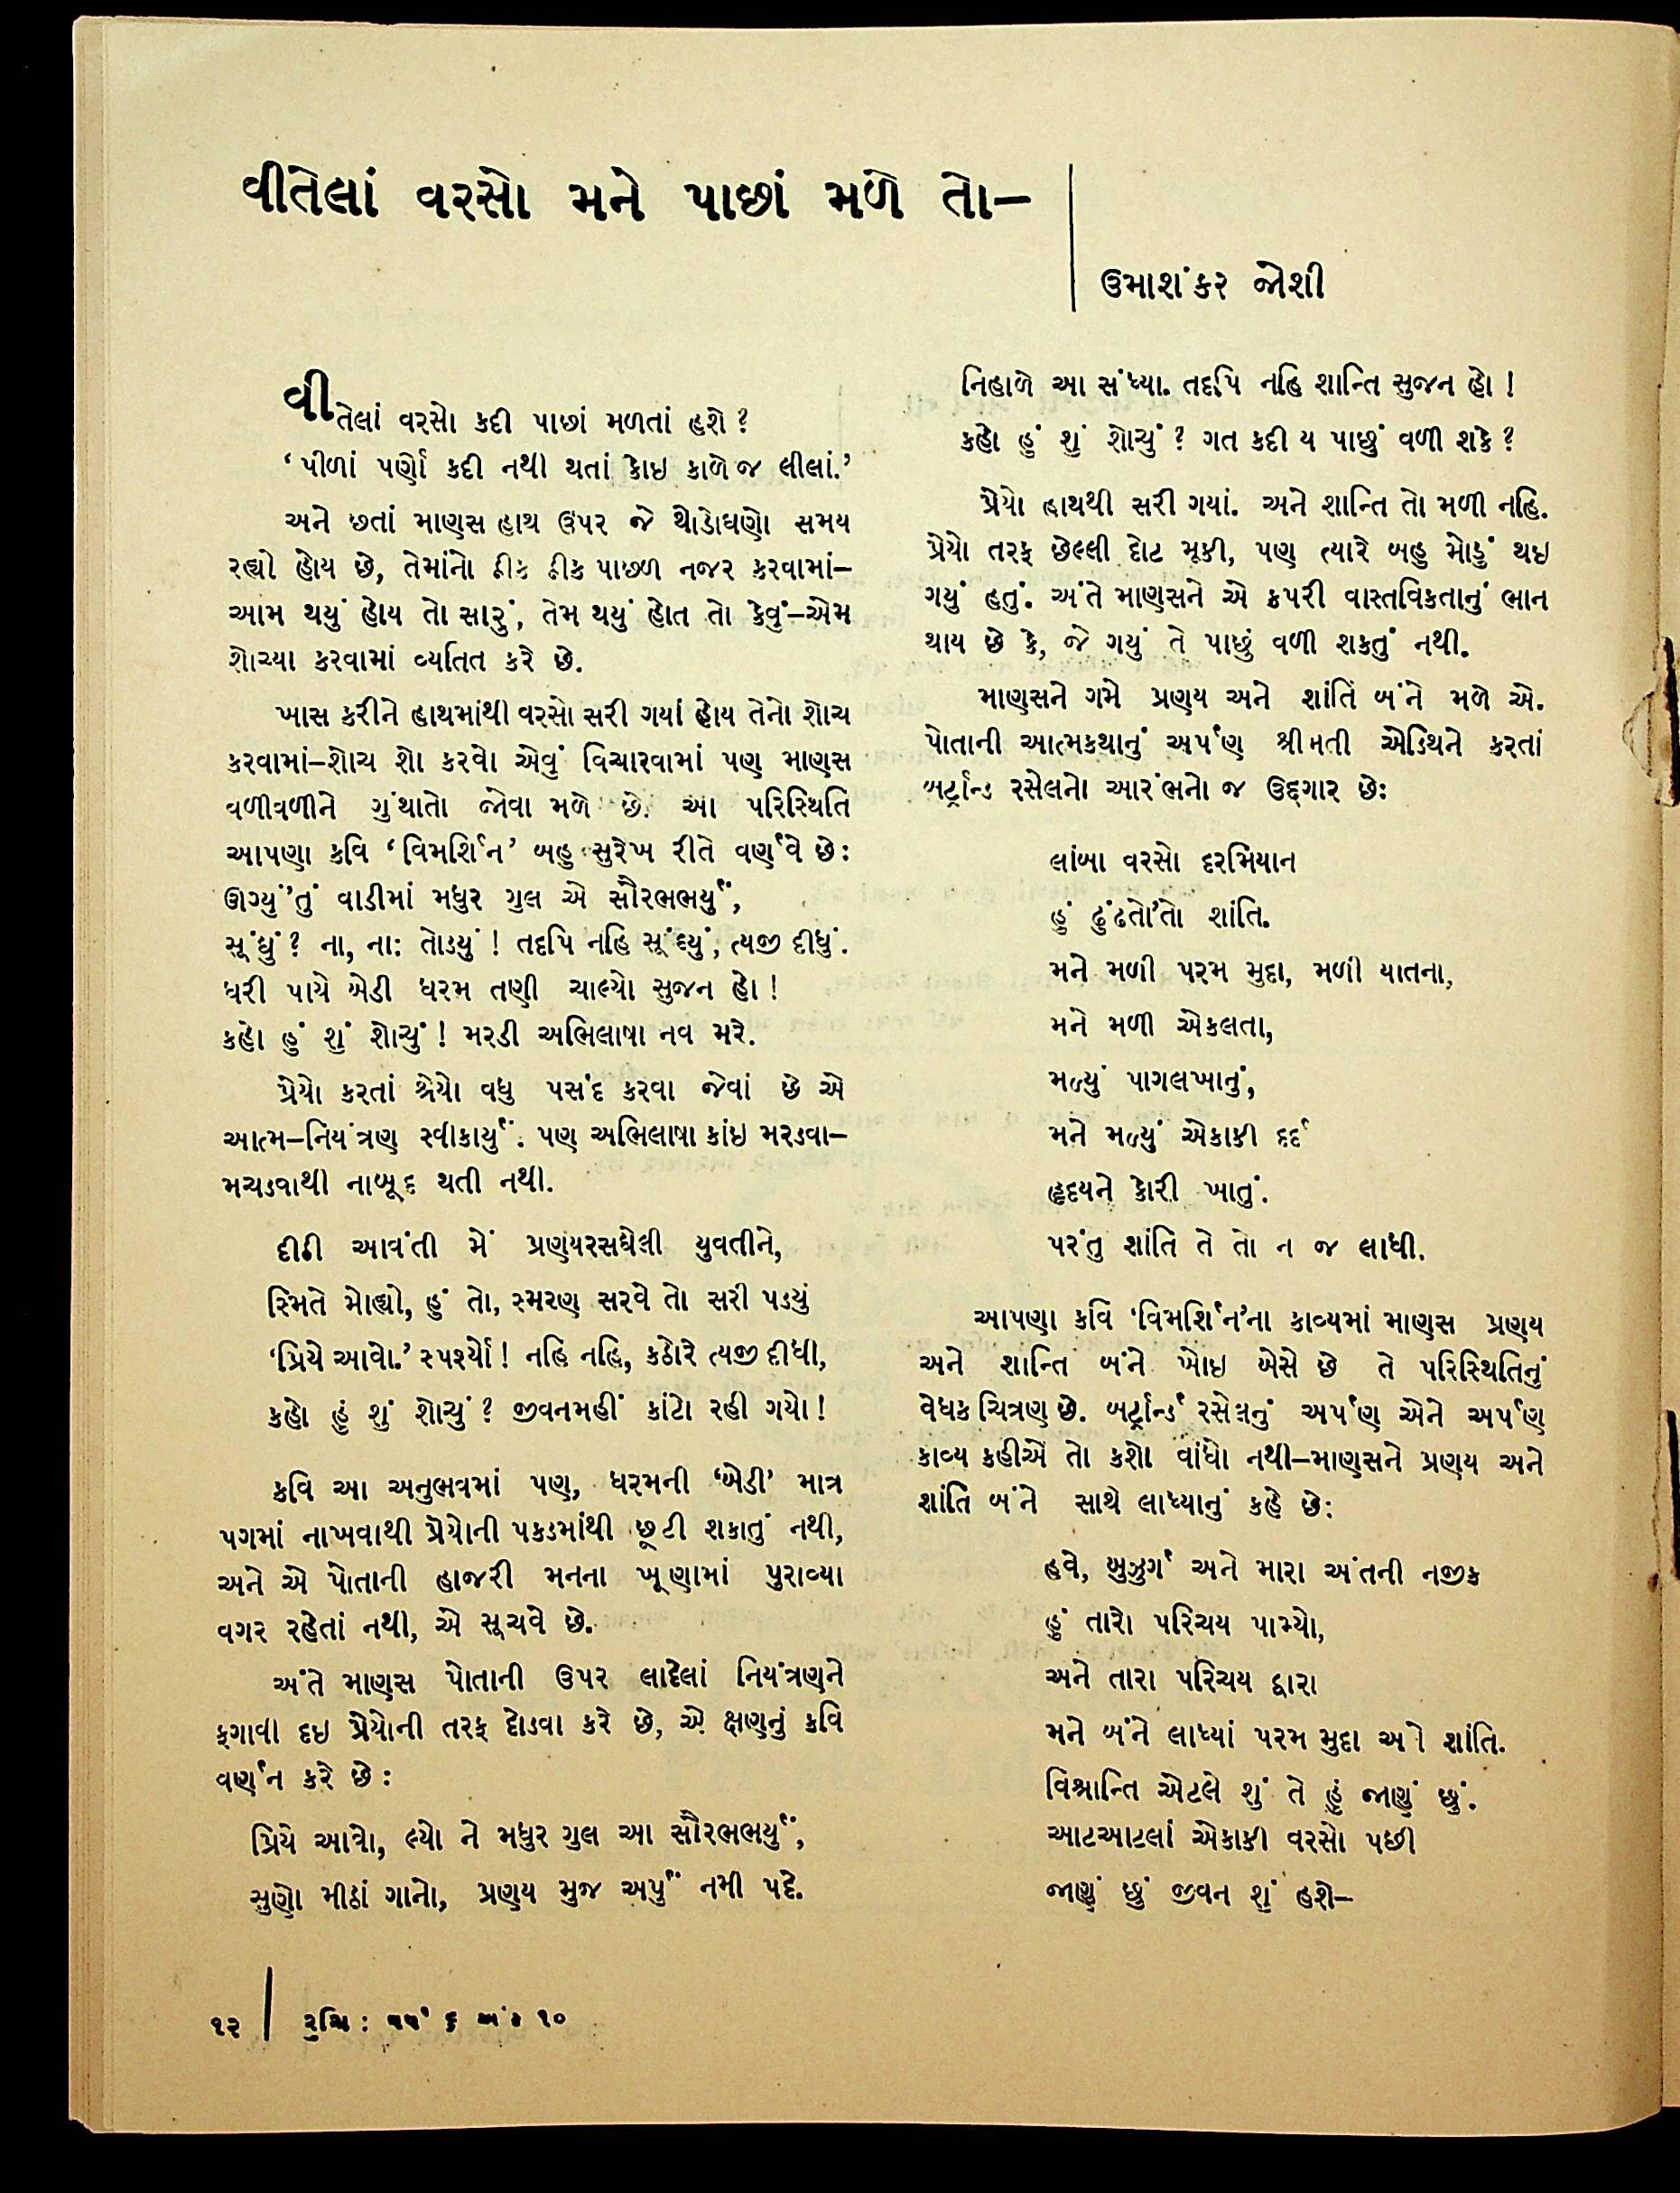 વીતેલાં વરસો મને પાછાં મળે તો–
ઉમાશંકર જોશી
વીતેલાં વરસો કદી પાછાં મળતાં હશે ?
‘પીળાં પર્ણો કદી નથી થતાં કોઇ કાળેજ લીલાં.’
અને છતાં માણસ હાથ ઉપર જે થોડોઘણો સમય
રહ્યો હોય છે, તેમાંનો ઠીક ઠીક પાછળ નજર કરવામાં–
આમ થયું હોય તો સારું, તેમ થયું હોત તો કેવું–એમ
શોચ્યા કરવામાં વ્યતિત કરે છે.
ખાસ કરીને હાથમાંથી વરસો સરી ગયાં હોય તેનો શોચ
કરવામાં–શોચ શો કરવો એવું વિચારવામાં પણ માણસ
વળીવળીને ગુંથાતો જોવા મળે છે. આ પરિસ્થિતિ
આપણા કવિ ‘વિમર્શિન’ બહુ સુરેખ રીતે વર્ણવે છે :
ઊગ્યું’તું વાડીમાં મધુર ગુલ એ સૌરભભર્યું,
સૂંઘું ? ના, ના: તોડ્યું ! તદપિ નહિ સૂંઘ્યું, ત્યજી દીધું.
ધરી પાયે બેડી ધરમ તણી ચાલ્યો સુજન હો !
કહો હું શું શોચું ! મરડી અભિલાષા નવ મરે.
પ્રેયો કરતાં શ્રેયો વધુ પસંદ કરવા જેવાં છે એ
આત્મ–નિયંત્રણ સ્વીકાર્યું. પણ અભિલાષા કાંઇ મરડવા–
મચડવાથી નાબૂદ થતી નથી.
દીઠી આવંતી મેં પ્રણયરસઘેલી યુવતીને,
સ્મિતે મોહ્યો, હું તો, સ્મરણ સરવે તો સરી પડ્યું
‘પ્રિયે આવો.’ સ્પર્શ્યો ! નહિ નહિ, કઠોરે ત્યજી દીધી,
કહો હું શું શોચું ? જીવનમહીં કાંટો રહી ગયો !
કવિ આ અનુભવમાં પણ, ધરમની ‘બેડી’ માત્ર
પગમાં નાખવાથી પ્રેયોની પકડમાંથી છૂટી શકાતું નથી,
અને એ પોતાની હાજરી મનના ખૂણામાં પુરાવ્યા
વગર રહેતાં નથી, એ સૂચવે છે.
અંતે માણસ પોતાની ઉપર લાદેલાં નિયંત્રણને
ફગાવી દઇ પ્રેયોની તરફ દોડવા કરે છે, એ ક્ષણનું કવિ
વર્ણન કરે છે :
પ્રિયે આવો, લ્યો ને મધુર ગુલ આ સૌરભભર્યું,
સુણો મીઠાં ગાનો, પ્રણય મુજ અર્પું નમી પદે.
નિહાળે આ સંધ્યા. તદપિ નહિ શાન્તિ સુજન હો !
કહો હું શું શોચું ? ગત કદી ય પાછું વળી શકે ?
પ્રેયો હાથથી સરી ગયાં. અને શાન્તિ તો મળી નહિ.
પ્રેયો તરફ છેલ્લી દોટ મૂકી, પણ ત્યારે બહુ મોડું થઇ
ગયું હતું. અંતે માણસને એ કપરી વાસ્તવિકતાનું ભાન
થાય છે કે, જે ગયું તે પાછું વળી શકતું નથી.
માણસને ગમે પ્રણય અને શાંતિ બંને મળે એ.
પોતાની આત્મકથાનું અર્પણ શ્રીમતી એડિથને કરતાં
બર્ટ્રાન્ડ રસેલનો આરંભનો જ ઉદ્દગાર છે:
લાંબા વરસો દરમિયાન
હું ઢુંઢતો’તો શાંતિ.
મને મળી પરમ મુદા, મળી યાતના,
મને મળી એકલતા,
મળ્યું પાગલખાનું,
મને મળ્યું એકાકી દર્દ
હૃદયને કોરી ખાતું.
પરંતુ શાંતિ તે તો ન જ લાધી.
આપણા કવિ ‘વિમર્શિન’ના કાવ્યમાં માણસ પ્રણય
અને શાન્તિ બંને ખોઇ બેસે છે તે પરિસ્થિતિનું
વેધક ચિત્રણ છે. બર્ટ્રાન્ડ રસેલનું અર્પણ એને અર્પણ
કાવ્ય કહીએ તો કશો વાંધો નથી–માણસને પ્રણય અને
શાંતિ બંને સાથે લાધ્યાનું કહે છે:
હવે, બુઝુર્ગ અને મારા અંતની નજીક
હું તારો પરિચય પામ્યો,
અને તારા પરિચય દ્વારા
મને બંને લાધ્યાં પરમ મુદા ઓ શાંતિ.
વિશ્રાન્તિ એટલે શું તે હું જાણું છું.
આટઆટલાં એકાકી વરસો પછી
જાણું છું જીવન શું હશે–
૧૨ | રુચિ : વર્ષ ૬ અંક ૧૦